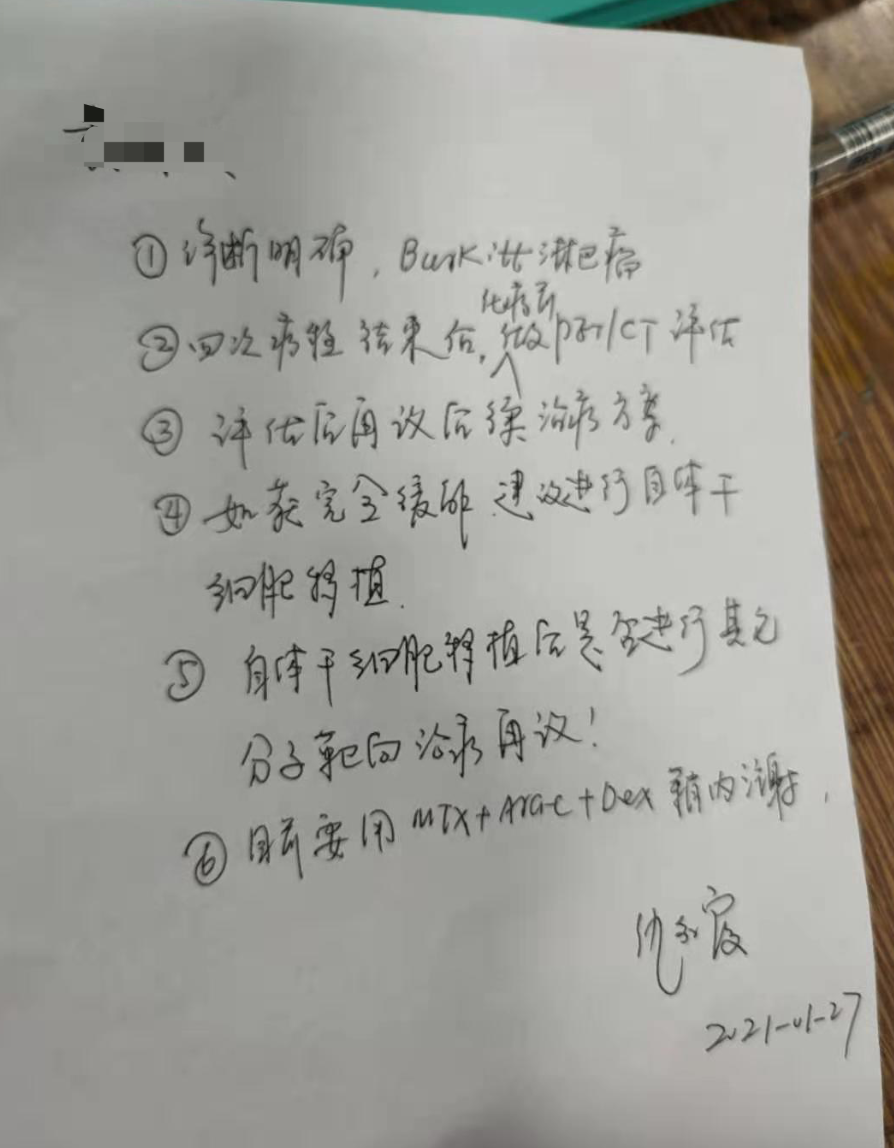 ① 诊断明确，Burkitt淋巴瘤
② 四次疗程结束后，化疗前做PET/CT评估
③ 评估后再议后续治疗方案.
④ 如获完全缓解 建议进行自体干
细胞移植.
⑤ 自体干细胞移植后是否进行其它
分子靶向治疗再议！
⑥ 目前要用MTX+Ara-C+Dex鞘内注射.
2021-01-27